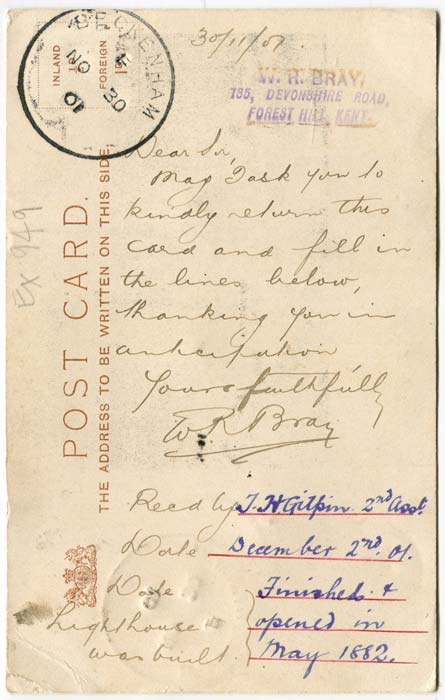 BECKENHAM
NO 30
01
INLAND
FOREIGN
30/11/01
W. R. BRAY,
135, DEVONSHIRE ROAD,
FOREST HILL, KENT.
Dear Sir,
May I ask you to
kindly return this
card and fill in
the lines below,
thanking you in
anticipation
Yours faithfully
W R Bray
Ex 949
POST CARD.
THE ADDRESS TO BE WRITTEN ON THIS SIDE.
Recd by J. H Gilpin 2nd Asst.
Date December 2nd. 01.
Date Finished &
Lighthouse opened in
was built. May 1882.